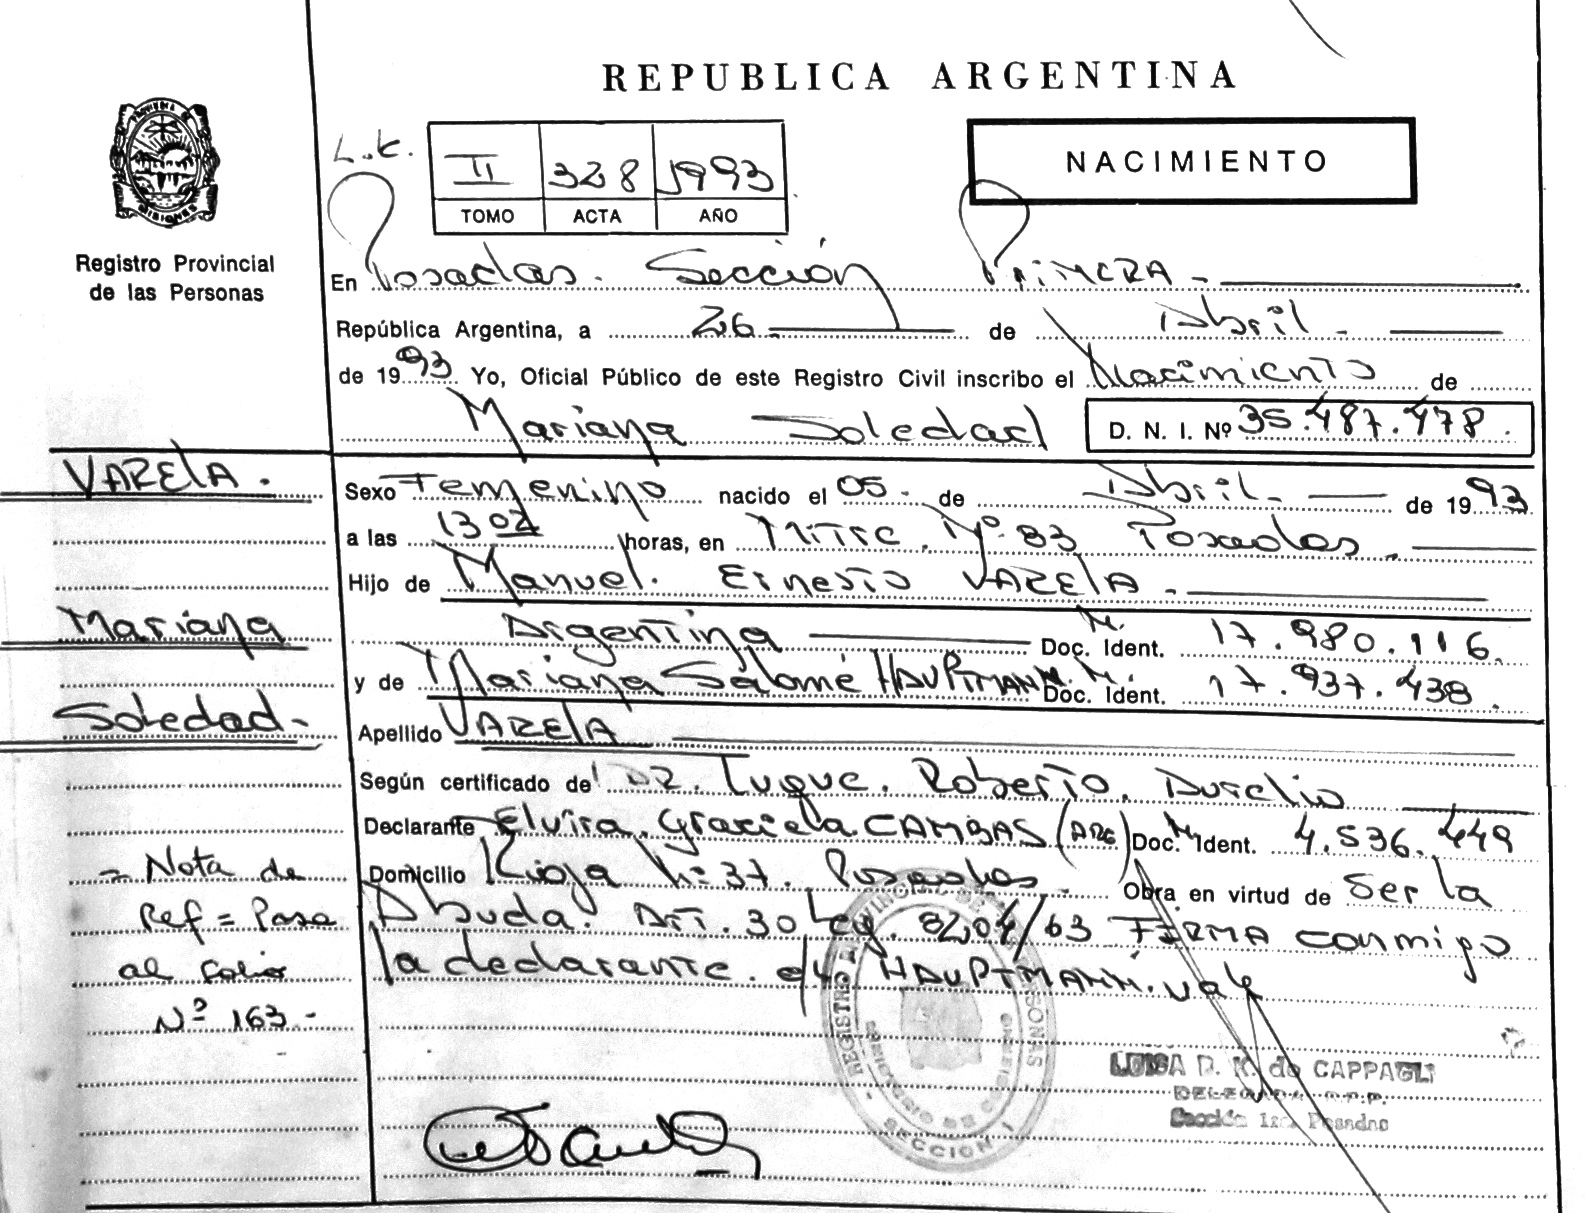 REPUBLICA ARGENTINA
PROVINCIA DE
MISIONES
Registro Provincial
de las Personas
L.C.
II 328 1993
TOMO ACTA AÑO
NACIMIENTO
En Posadas. Sección PRIMERA.
República Argentina, a 26 de Abril.
de 1993 Yo, Oficial Público de este Registro Civil inscribo el Nacimiento de
Mariana Soledad D. N. I. Nº 35.487.478.
VARElA.
Mariana
Soledad-
= Nota de
Ref = Pasa
al folio
Nº 163.-
Sexo Femenino nacido el 05. de Abril. de 1993
a las 13 02 horas, en MiTre. Nº 83 Posadas.
Hijo de Manuel. Ernesto VARELA.
Argentina Doc. Ident. M. 17.980.116.
y de Mariana Salomé HAUPTMANN. Doc. Ident. M. 17.937.438.
Apellido VARElA
Según certificado del DR. Luque. Roberto. Aurelio
Declarante Elvira. Graciela CAMBAS (ARG) Doc. Ident. M. 4.536.449
Domicilio Rioja Nº 37. Posadas. Obra en virtud de Ser la
Abuela. Art. 30 Ley. 8204/63 FIRMA conmigo
la declarante. e/l HAUPTMANN. vale
REGISTRO PROVINCIAL DE LAS PERSONAS
SECCION I
LUISA D. K. de CAPPAGLI
DELEGADA R.P.P.
Sección 1ra. Posadas